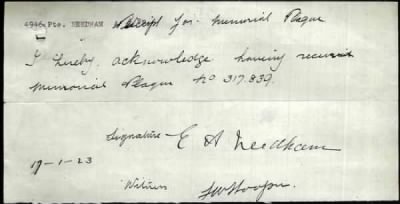 4946 Pte. NEEDHAM Receipt for Memorial Plaque
I hereby acknowledge having received
Memorial Plaque No 317,839.
Signature - E A Needham
17-1-23
Witness